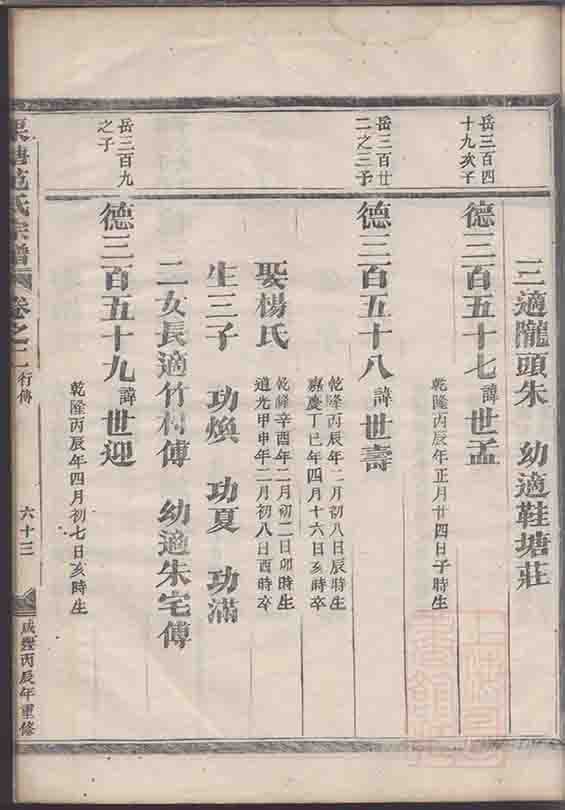 岳三百四
十九亥子
三適隴頭朱 幼適鞋塘莊
德三百五十七諱世孟
乾隆丙辰年正月廿四日子時生
岳三百廿
二之三子
德三百五十八諱世壽
乾隆丙辰年二月初八日辰時生
嘉慶丁巳年四月十六日亥時卒
娶楊氏
乾隆辛酉年二月初二日卯時生
道光甲申年二月初八日酉時卒
生三子 功煥 功夏 功滿
二女長適竹村傅 幼適朱宅傅
岳三百九
之子
德三百五十九諱世迎
乾隆丙辰年四月初七日亥時生
氏宗譜 卷之二 行傳 六十三 咸豐丙辰年重修
上海圖書館藏